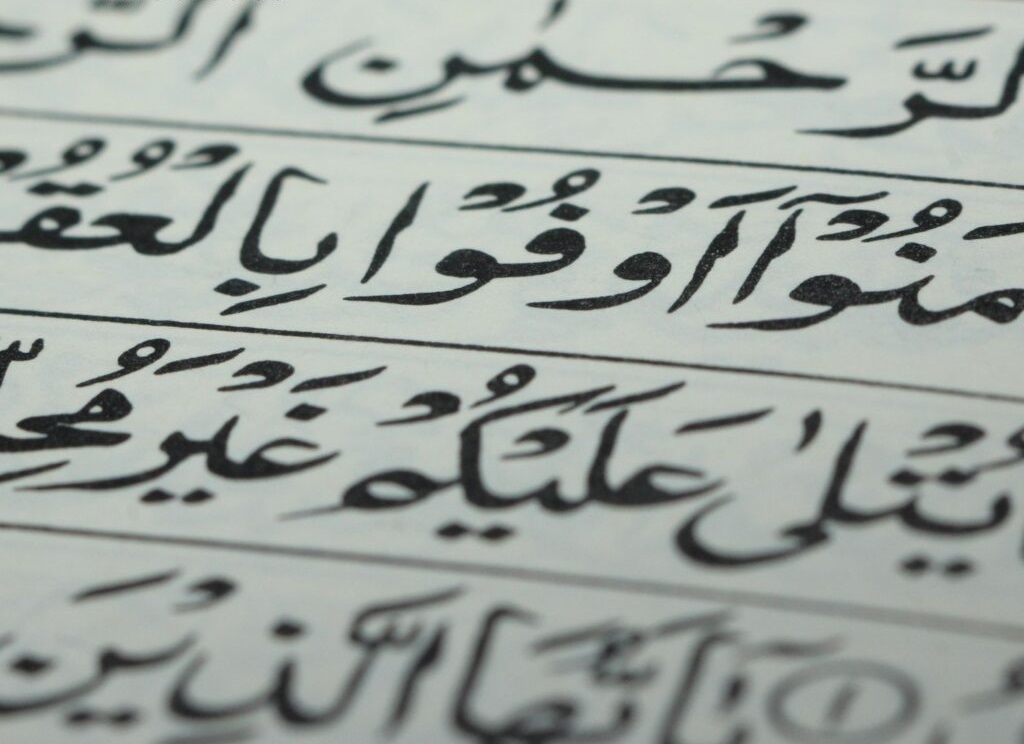 لرَّحْمٰنِ الر
مَنُوْۤا اَوْفُوْا بِالْعُقُ
يُتْلٰى عَلَيْكُمْ غَيْرَ مُحِ
١ يٰۤاَيُّهَا الَّذِيْنَ